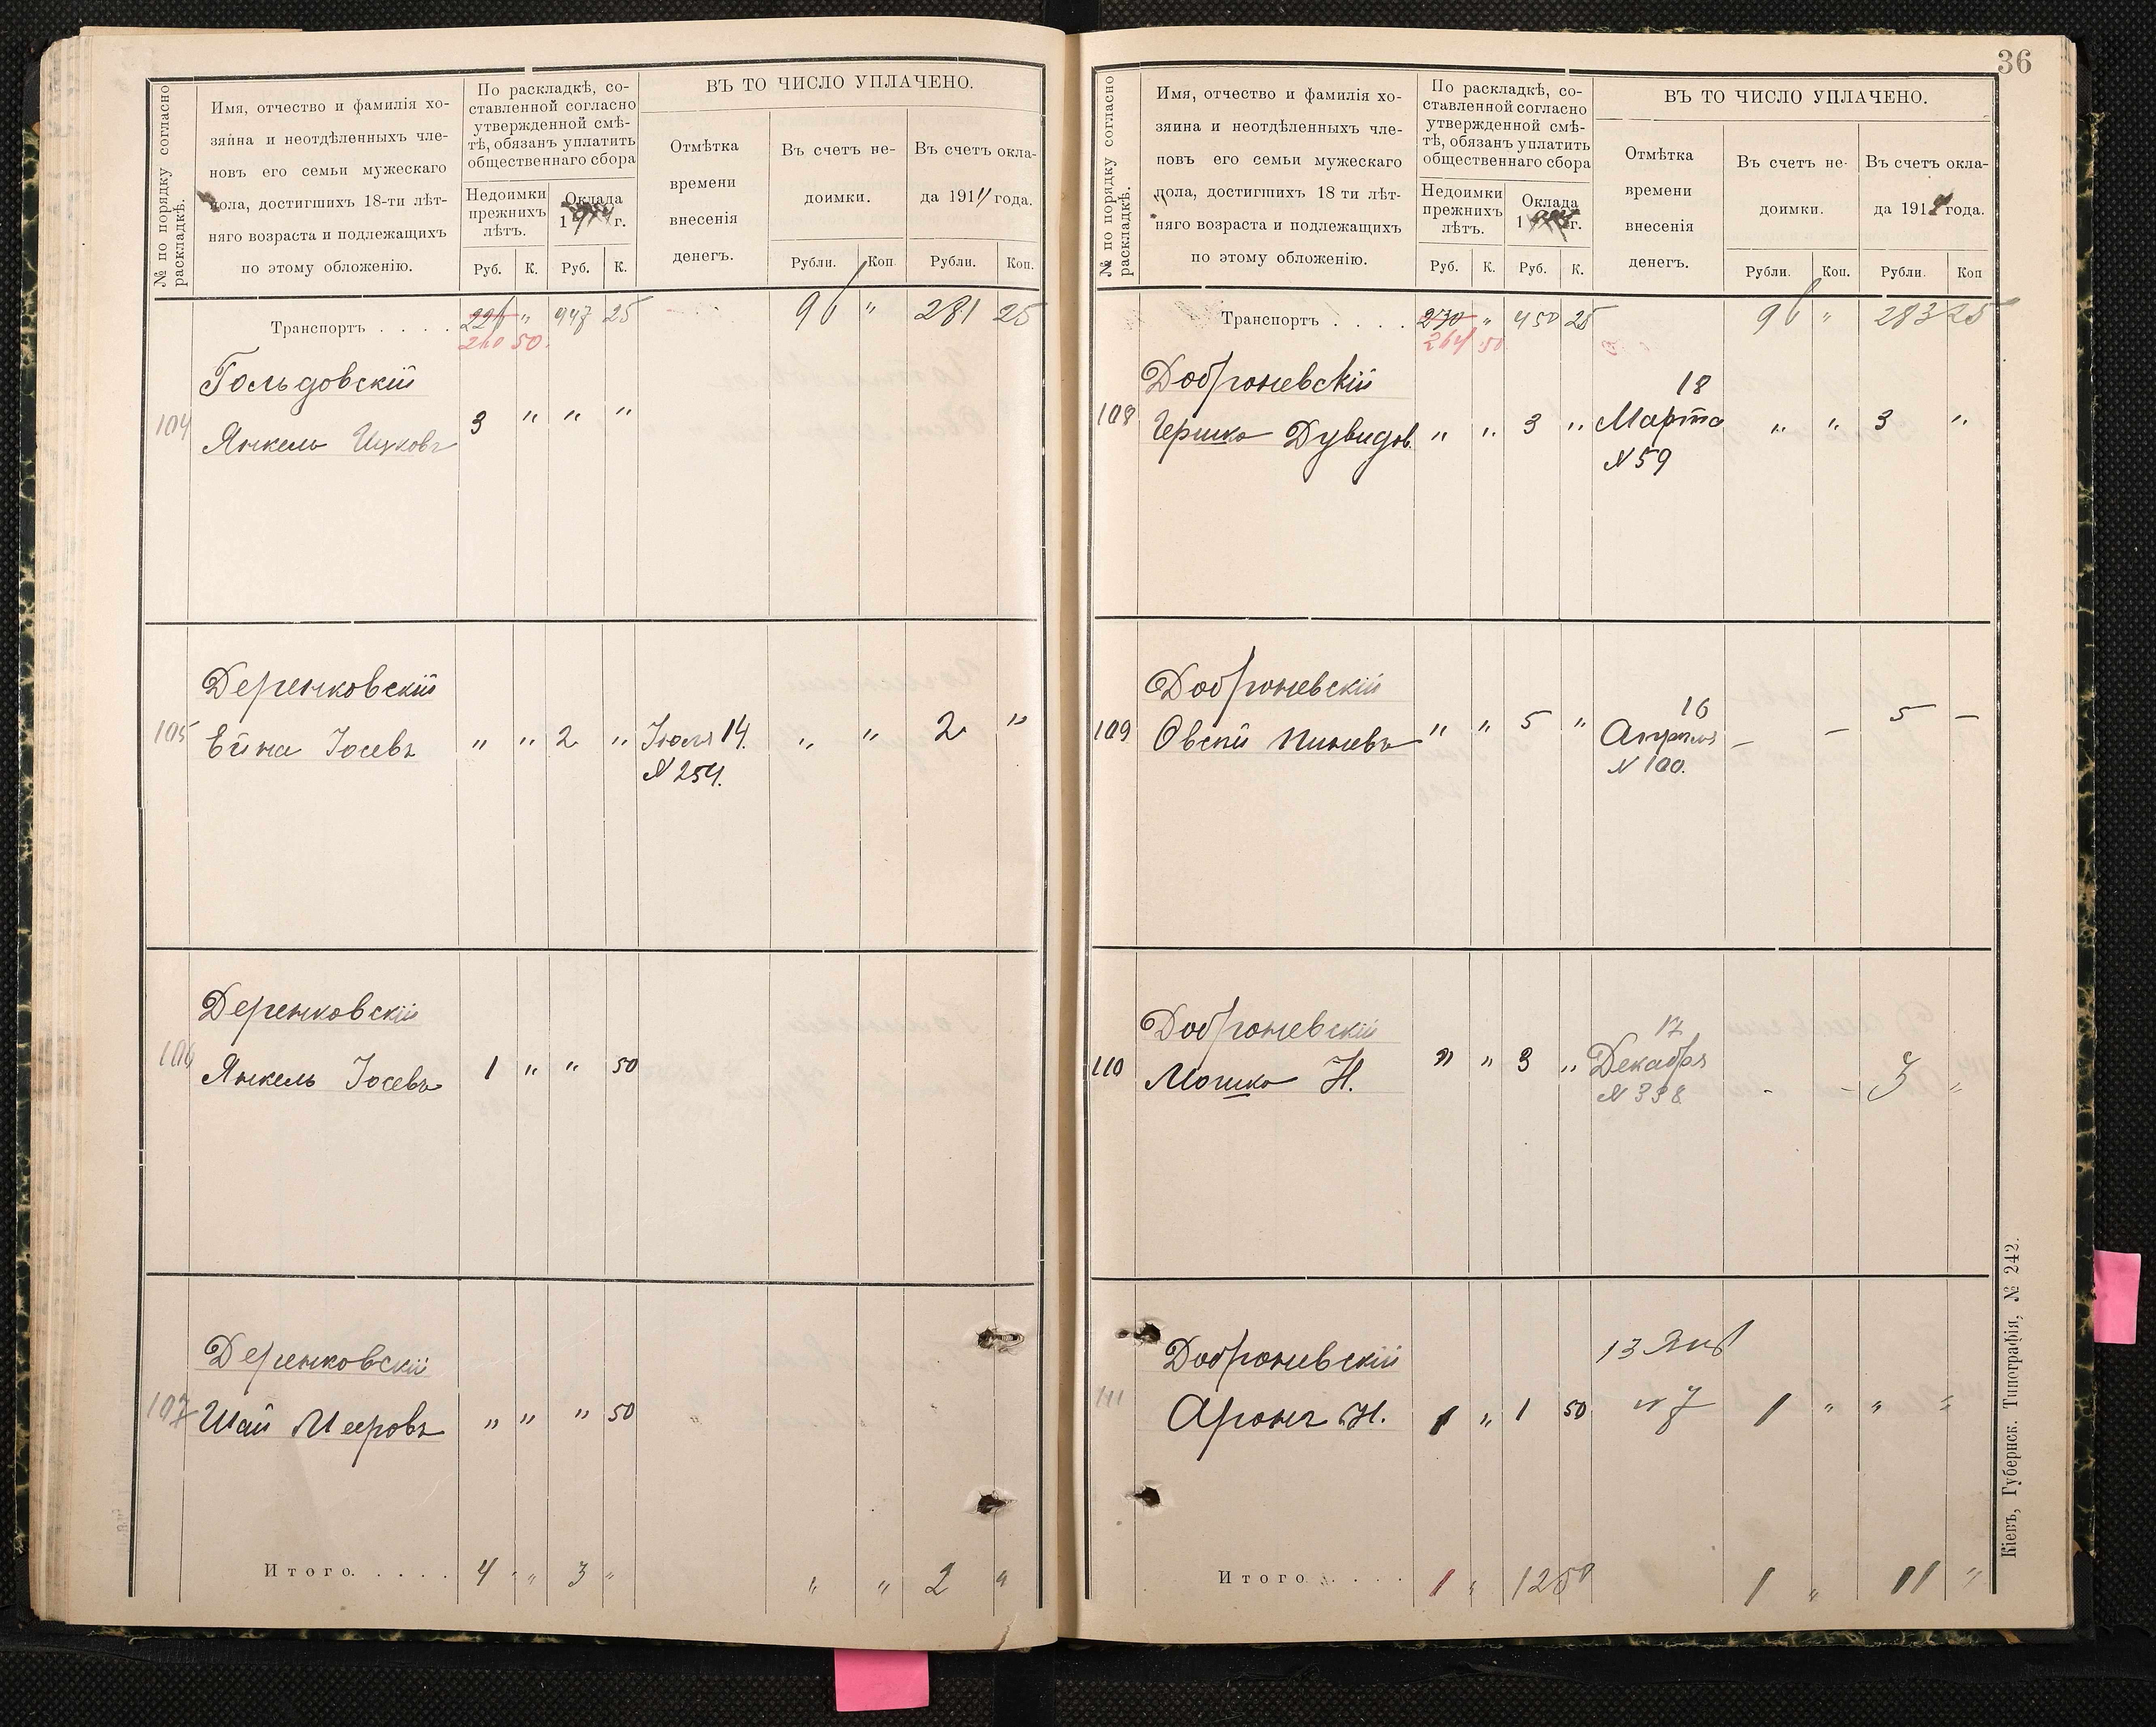 № по порядку согласно
раскладкѣ.
Имя, отчество и фамилія хо-
зяина и неотдѣленныхъ чле-
новъ его семьи мужескаго
пола, достигшихъ 18-ти лѣт-
няго возраста и подлежащихъ
по этому обложенію.
По раскладкѣ, со-
ставленной согласно
утвержденной смѣ-
тѣ, обязанъ уплатить
общественнаго сбора
Недоимки
прежнихъ
лѣтъ.
Оклада
г.
Руб. К. Руб. К.
ВЪ ТО ЧИСЛО УПЛАЧЕНО.
Отмѣтка
времени
внесенія
денегъ.
Въ счетъ не-
доимки.
Рубли. Коп.
Въ счетъ окла-
да 1911 года.
Рубли. Коп.
Транспортъ . . . . 226 " 947 25 96 " 281 25
260 50.
Гольдовскій
104 Янкель Ицковъ 3 " " "
Деренковскій
105 Ейна Іосевъ " " 2 " Іюля 14. " " 2 "
N 254.
Деренковскій
106 Янкель Іосевъ 1 " " 50
Деренковскій
107 Шай Мееровъ " " " 50
Итого. . . . . 4 " 3 " " " 2 "
36
№ по порядку согласно
раскладкѣ.
Имя, отчество и фамилія хо-
зяина и неотдѣленныхъ чле-
новъ его семьи мужескаго
пола, достигшихъ 18 ти лѣт-
няго возраста и подлежащихъ
по этому обложенію.
По раскладкѣ, со-
ставленной согласно
утвержденной смѣ-
тѣ, обязанъ уплатить
общественнаго сбора
Недоимки
прежнихъ
лѣтъ.
Оклада
г.
Руб. К. Руб. К.
ВЪ ТО ЧИСЛО УПЛАЧЕНО.
Отмѣтка
времени
внесенія
денегъ.
Въ счетъ не-
доимки.
Рубли. Коп.
Въ счетъ окла-
да 191 года.
Рубли. Коп
Транспортъ . . . . 230 " 950 25 96 " 283 25
264 50
Доброневскій 18
108 Гершко Дувидов. " " 3 " Марта " " 3 "
N 59
Доброневскій 16
109 Овсей Пиневъ " " 5 " Апрѣля — — 5 —
N 100.
Доброневскій 17
110 Мошко Н. " " 3 " Декабря - - 3 "
N 338.
Доброневскій 13 Янв
111 Аронъ Н. 1 " 1 50 N 7 1 " " "
Итого . . . . 1 " 12 50 1 " 11 "
Кіевъ, Губернск. Типографія, № 242.